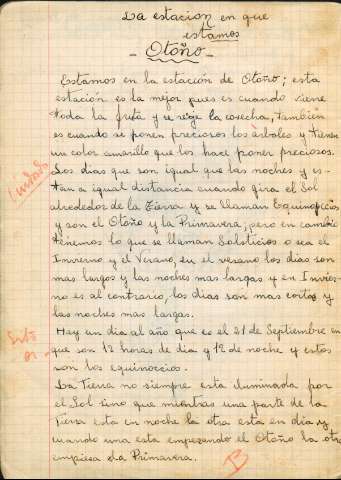 La estacion en que
estamos
- Otoño -
Estamos en la estación de Otoño; esta
estación es la mejor pues es cuando viene
toda la fruta y se coge la cosecha, también
es cuando se ponen preciosos los árboles y tienen
un color amarillo que los hace poner preciosos.
Los días que son igual que las noches y es-
tan a igual distancia cuando gira el Sol
alrededor de la Tierra y se llaman Equinoccios
y son el Otoño y la Primavera, pero en cambio
tenemos lo que se llaman Solsticios o sea el
Invierno y el Verano, en el verano los dias son
mas largos y las noches mas largas y en Invier-
no es al contrario, los dias son mas cortos y
las noches mas largas.
Hay un dia al año que es el 21 de Septiembre en
que son 12 horas de dia y 12 de noche y estos
son los equinoccios.
La Tierra no siempre esta iluminada por
el Sol sino que mientras una parte de la
Tierra esta en noche la otra esta en dia y
cuando una esta empezando el Otoño la otra
empiesa la Primavera.
B